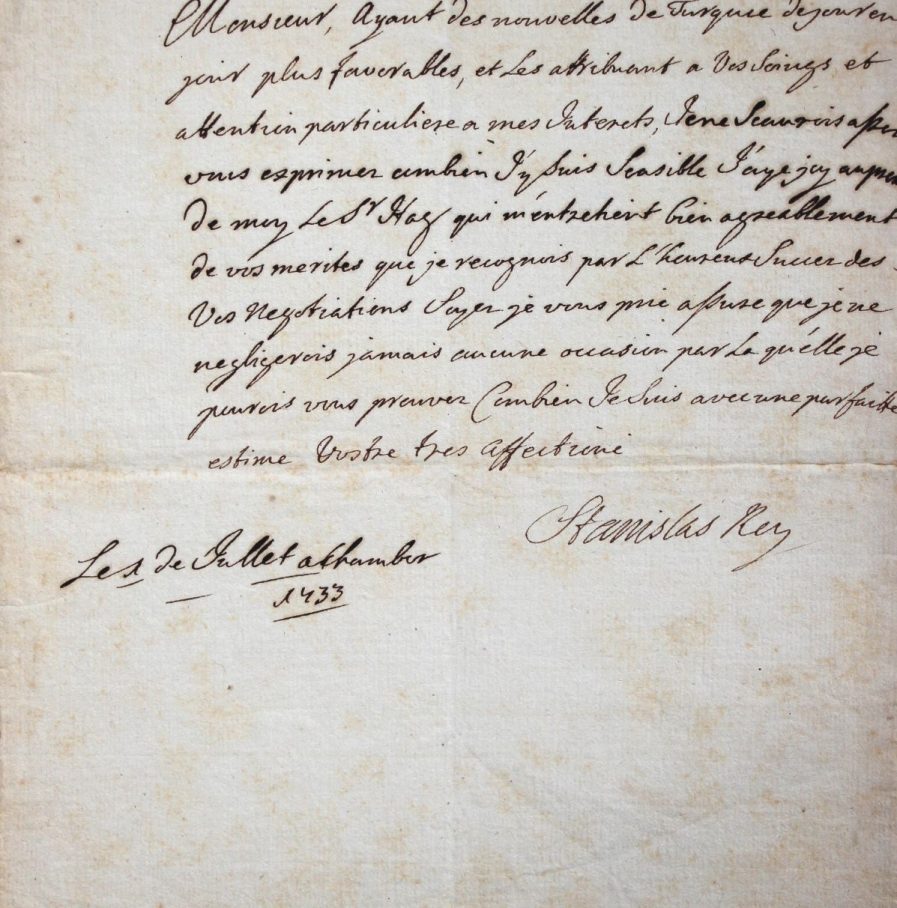 Monsieur, Ayant des nouvelles de Turquie de jour en
jour plus favorables, et Les attribuant a Vos Soings et
attention particuliere a mes Interets, Je ne Scaurois assez
vous exprimer combien J'y suis Sensible J'aye jcy aupres
de moy Le Sr Hag qui m'entretient bien agreablement
de vos merites que je recognois par L'heureux Succez des
Vos Negotiations Soyez je vous prie assure que je ne
negligerois jamais aucune occasion par La qu'elle je
pourois vous prouver Combien Je Suis avec une parfaitte
estime Vostre tres affectioné
Stanislas Roy
Le 1 de Jullet a Chambor
1733